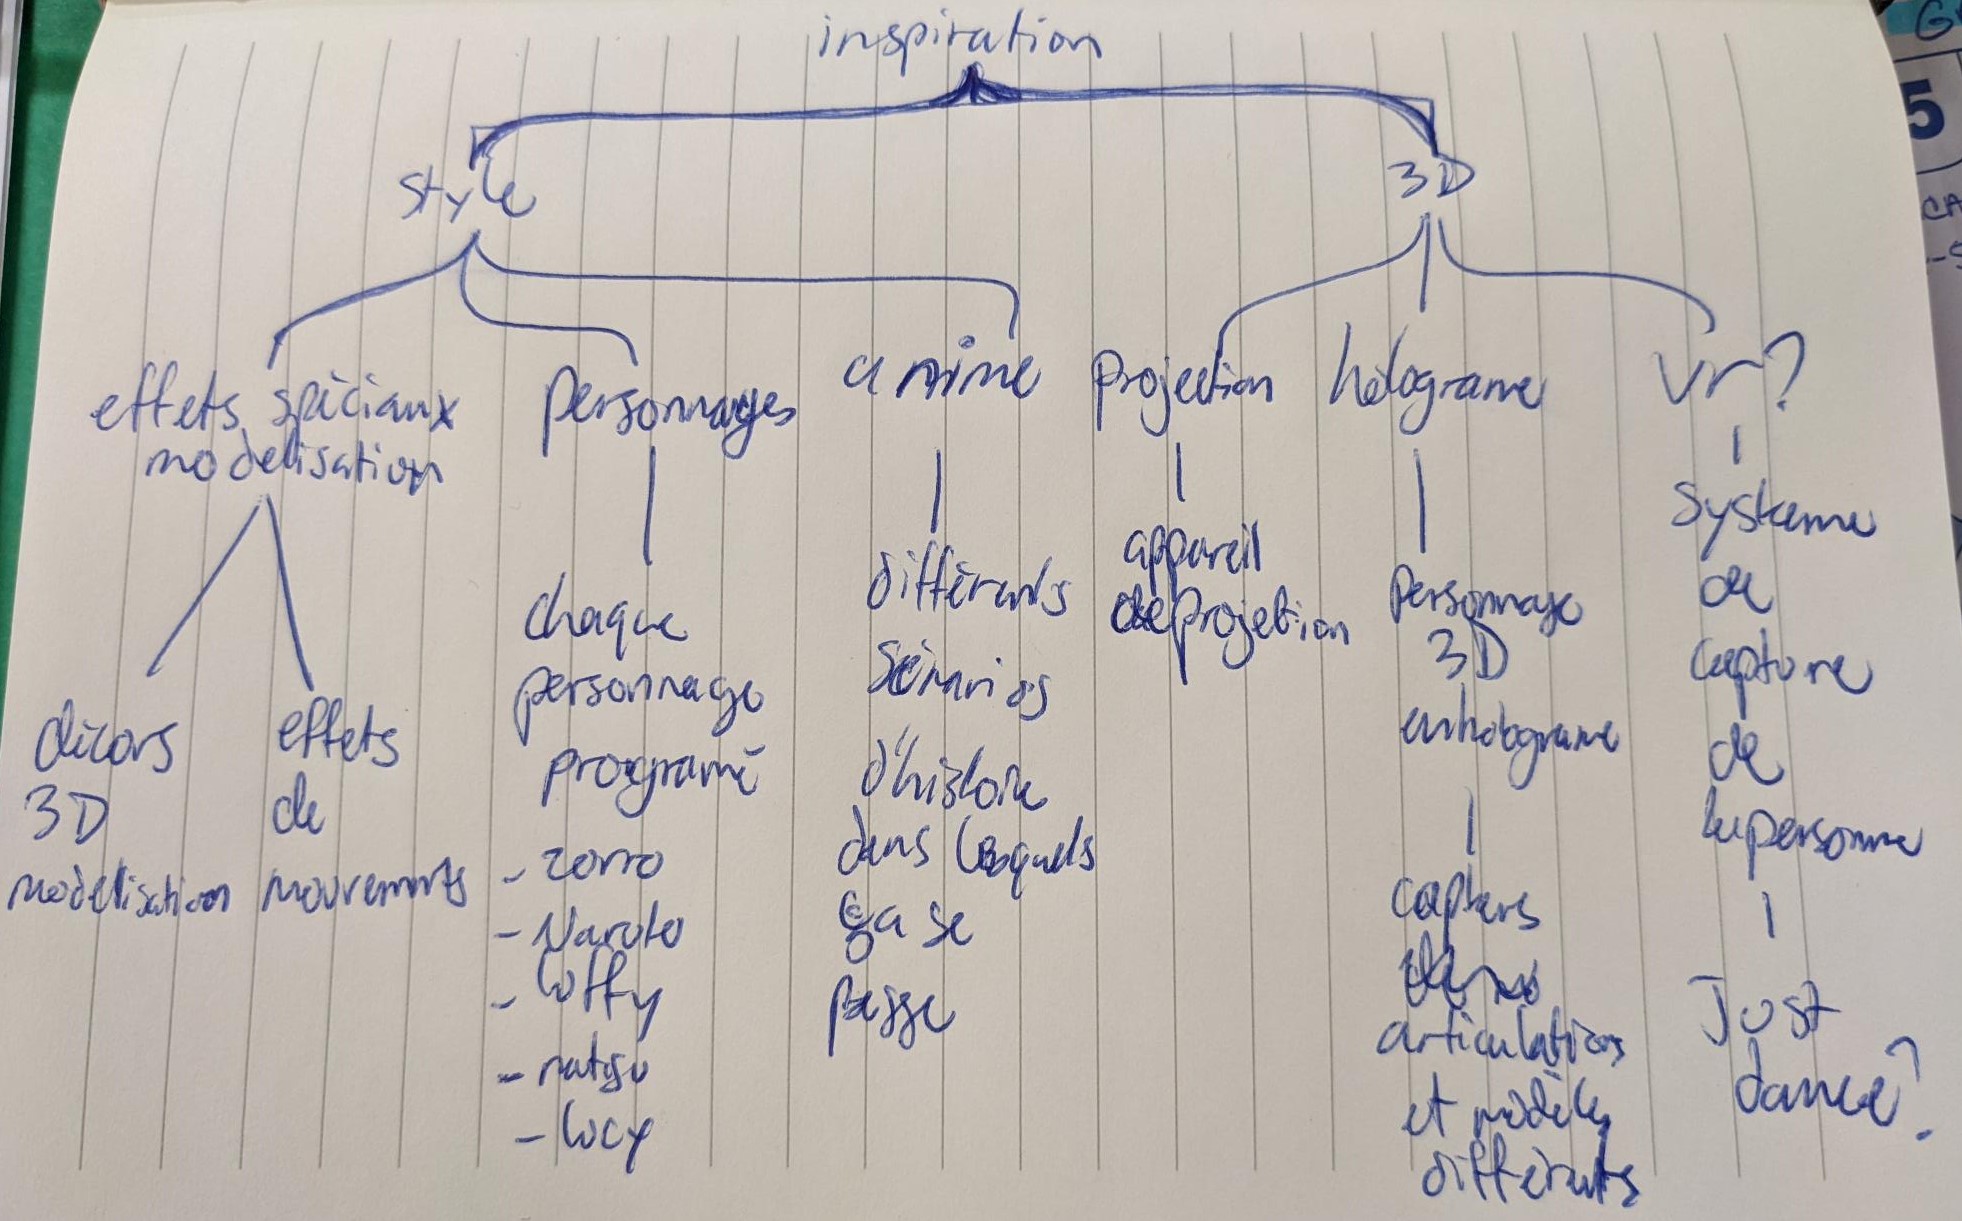 inspiration
style
3D
effets spéciaux
modélisation
décors
3D
modélisation
effets
de
mouvements
personnages
chaque
personnage
programé
- zorro
- Naruto
- luffy
- natsu
- lucy
anime
différents
scénarios
d'histoire
dans lesquels
ça se
passe
projection
appareil
de projetion
hologramme
personnage
3D
en hologramme
capters
articulations
et modèles
différents
vr?
systeme
de
capture
de
la personne
Just
dance?
G
5
CA